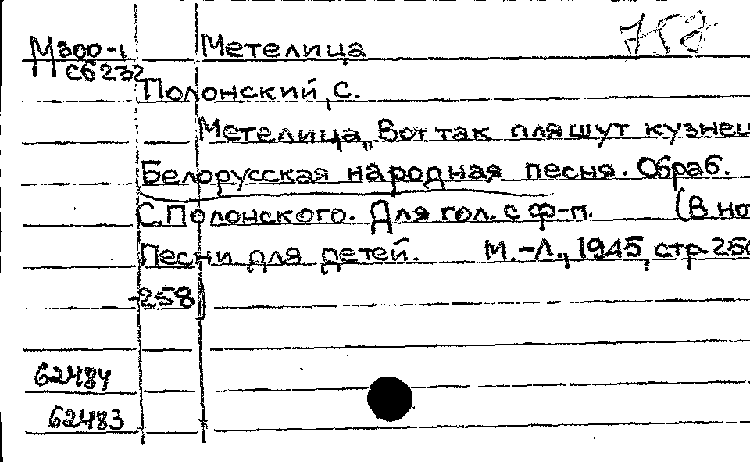 М300-1 Метелица 757
С6232
Полонский, С.
Метелица „Вот так пляшут кузнец
Белорусская народная песня. Обраб.
С. Полонского. Для гол. с ф-п. (В но
Песни для детей. М.-Л., 1945, стр. 256
-258)
62484
62483